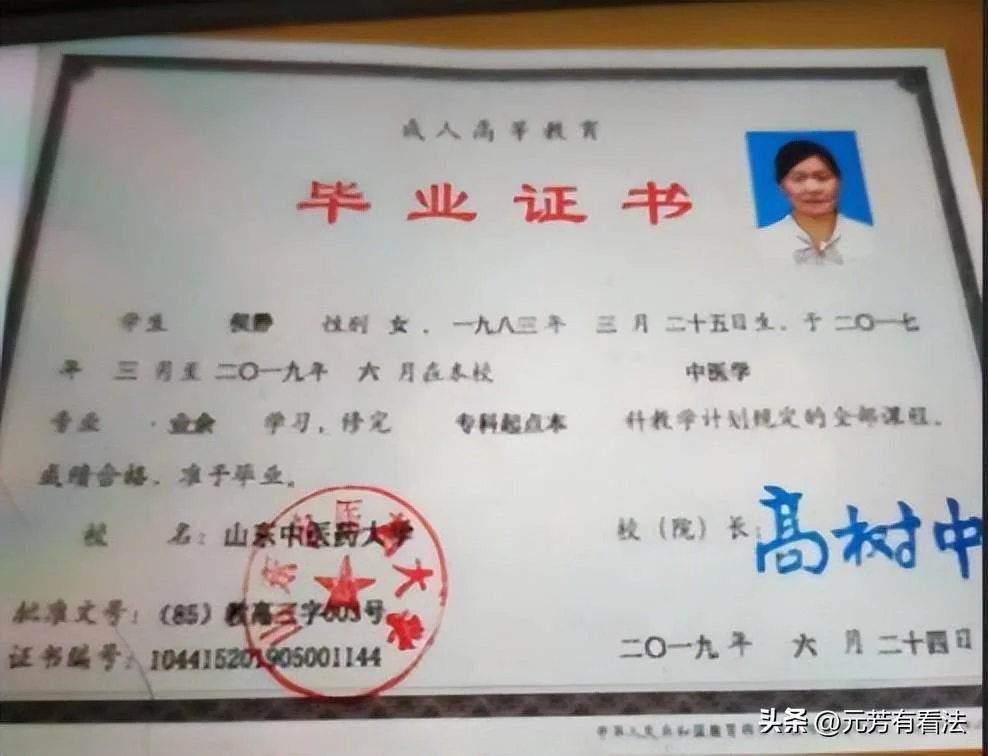 成人高等教育
毕业证书
学生 侯静 性别 女，一九八三年 三 月 二十五日生，于 二〇一七
年 三 月至 二〇一九年 六 月在本校 中医学
专业 业余 学习，修完 专科起点本 科教学计划规定的全部课程，
成绩合格，准予毕业。
校 名：山东中医药大学
校（院）长：高树中
山东中医药大学
批准文号：（85）教高三字003号
证书编号：104415201905001144
二〇一九年 六 月 二十四日
中华人民共和国教育
头条 @元芳有看法